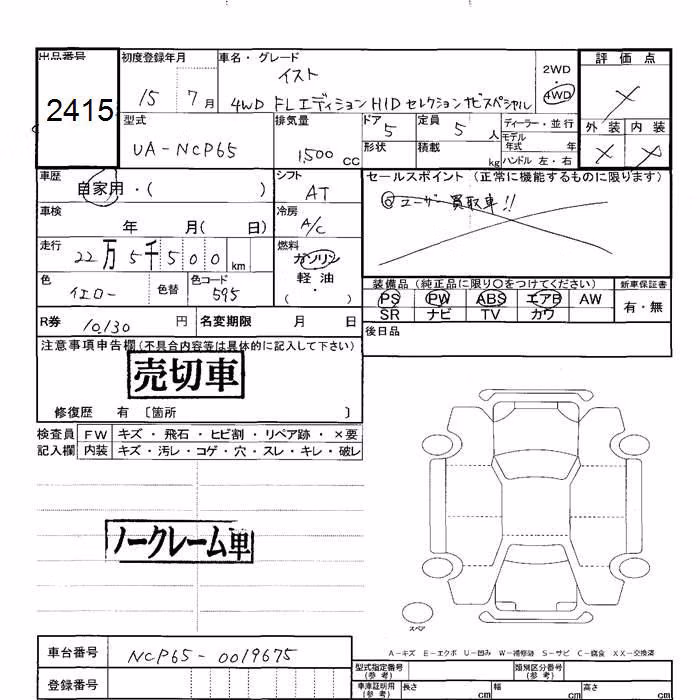 出品番号 初度登録年月 車名・グレード 評価点
2415 15 7月 イスト 2WD 4WD ×
4WD FLエディション HIDセレクションナビスペシャル
型式 排気量 ドア 5 定員 5人 ディーラー・並行 外装 内装
UA-NCP65 1,500cc 形状 積載 kg モデル年式 年 × ×
ハンドル 左・右
車歴 シフト セールスポイント (正常に機能するものに限ります)
自家用・( ) AT ◎ユーザー買取車!!
車検 年 月( 日) 冷房 A/C
走行 22万5千500km 燃料 ガソリン
軽油・( )
色 イエロー 色替 色コード 595
装備品 (純正品に限り○をつけてください) 新車保証書
PS PW ABS エアB AW 有・無
SR ナビ TV カワ
R券 10,130円 名変期限 月 日 後日品
注意事項申告欄 (不具合内容等は具体的に記入して下さい)
売切車
修復歴 有 〔箇所 〕
検査員 FW キズ・飛石・ヒビ割・リペア跡・×要
記入欄 内装 キズ・汚レ・コゲ・穴・スレ・キレ・破レ
ノークレーム車
スペア
A-キズ E-エクボ U-凹み W-補修跡 S-サビ C-腐食 XX-交換済
車台番号 NCP65-0019675
型式指定番号(参考) 類別区分番号(参考)
登録番号
車庫証明用(参考) 長さ cm 幅 cm 高さ cm